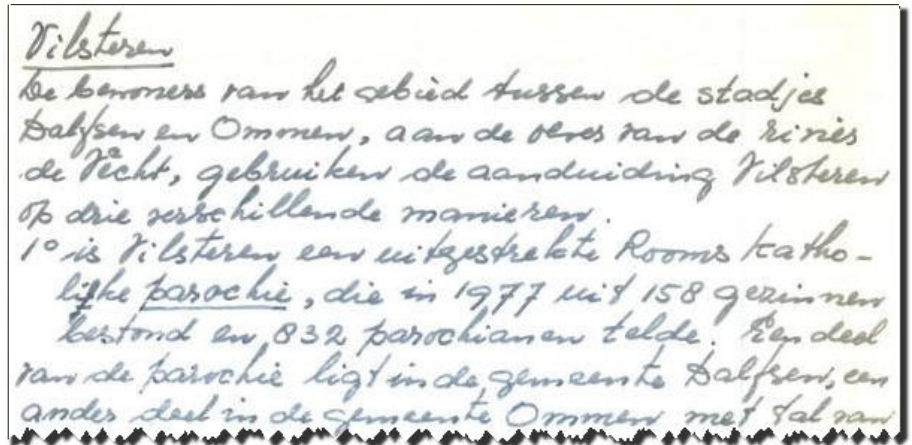 Vilsteren
De bewoners van het gebied tussen de stadjes
Dalfsen en Ommen, aan de oever van de rivier
de Vecht, gebruiken de aanduiding Vilsteren
op drie verschillende manieren.
1° is Vilsteren een uitgestrekte Rooms katho-
lijke parochie, die in 1977 uit 158 gezinnen
bestond en 832 parochianen telde. Een deel
van de parochie ligt in de gemeente Dalfsen, een
ander deel in de gemeente Ommen met tal van